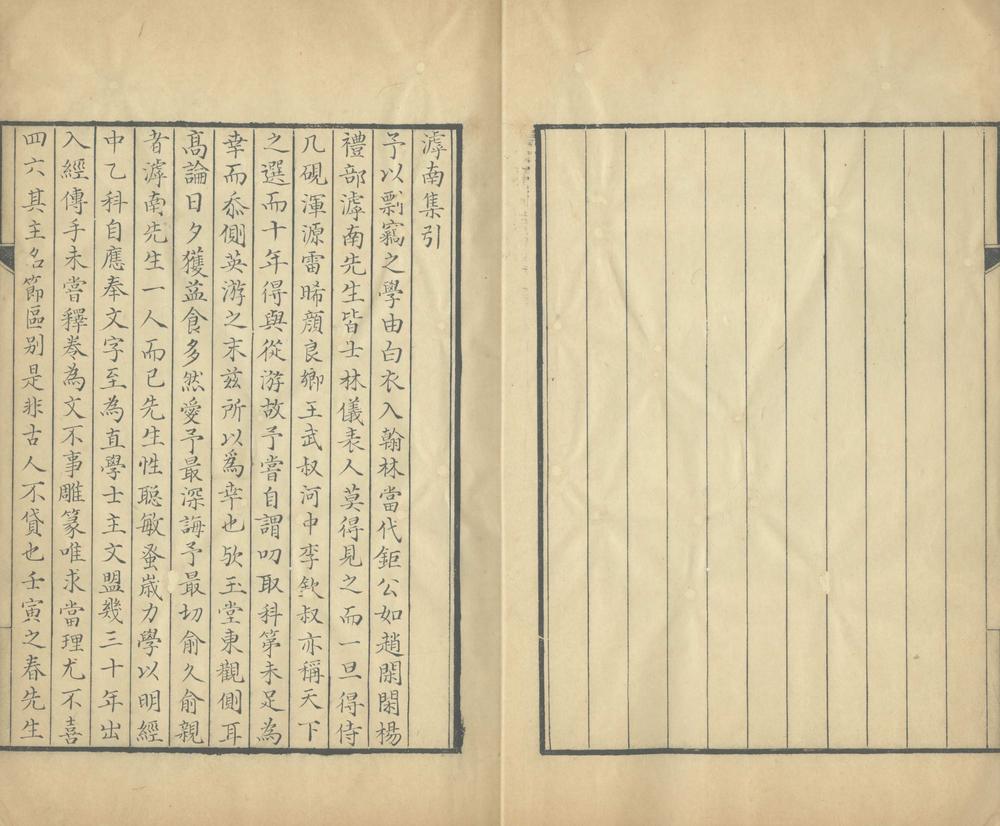 滹南集引
予以剽竊之學由白衣入翰林當代鉅公如趙閑閑楊
禮部滹南先生皆士林儀表人莫得見之而一旦得侍
几硯渾源雷晞顏良鄉王武叔河中李欽叔亦稱天下
之選而十年得與從游故予嘗自謂叨取科第未足為
幸而忝側英游之末兹所以為幸也欤玉堂東觀側耳
高論日夕獲益食多然愛予最深誨予最切俞久俞親
者滹南先生一人而已先生性聪敏蚤歲力學以明經
中乙科自應奉文字至為直學士主文盟幾三十年出
入經傳手未嘗釋卷為文不事雕篆唯求當理尤不喜
四六其主名節區别是非古人不貸也壬寅之春先生